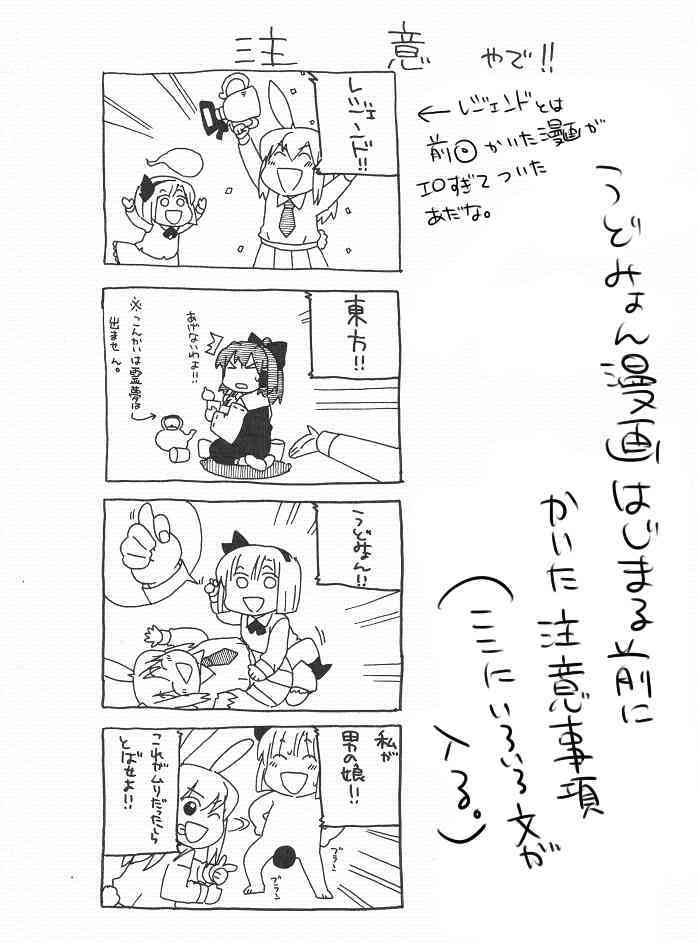 注意やで!!
レジェンド!!
←レジェンドとは
前回かいた漫画が
エロすぎてついた
あだな。
うどみょん漫画はじまる前に
かいた注意事項
(ここにいろいろ文が
入る。)
東方!!
あげないわよ!!
※こんかいは霊夢は
出ません。
うどみょん!!
私が
男の娘!!
これがムリだったら
とばせよ!!
ブラン
ブラン